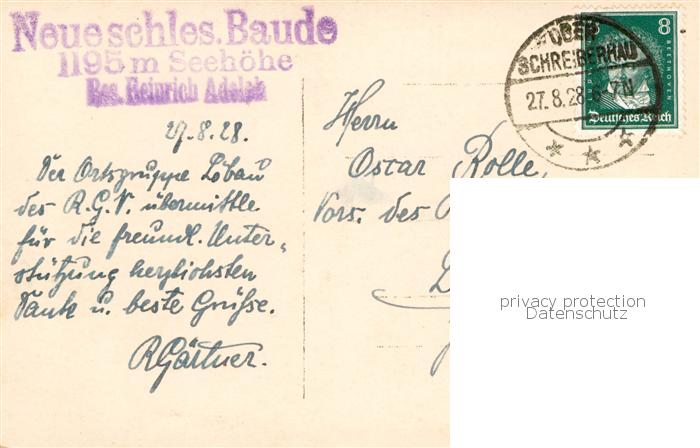 Neue schles. Baude
1195 m Seehöhe
Bes. Heinrich Adolph
27.8.28.
Der Ortsgruppe Löbau
des R.G.V. übermittle
für die freundl. Unter-
stützung herzlichsten
Dank u. beste Grüsse.
RGärtner.
OBER
SCHREIBERHAU
27.8.28
8
BEETHOVEN
Deutsches Reich
Herrn
Oscar Rolle,
Vors. des
privacy protection
Datenschutz